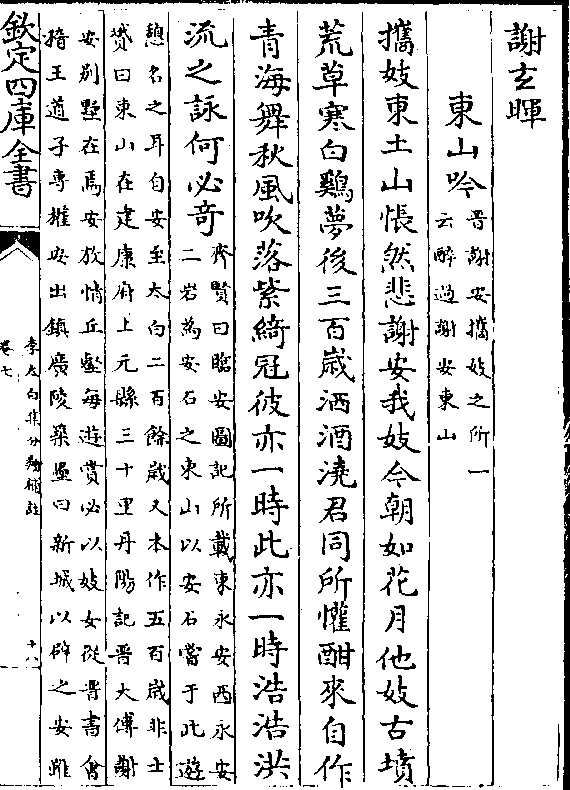 謝玄暉
東山吟
晋謝安攜妓之所一
云醉過謝安東山
攜妓東土山悵然悲謝安我妓今朝如花月他妓古墳
荒草寒白鷄夢後三百歲洒酒澆君同所懽酣來自作
青海舞秋風吹落紫綺冠彼亦一時此亦一時浩浩洪
流之詠何必奇
齊賢曰臨安圖記所載東永安西永安
二岩為安石之東山以安石嘗于此遊
憇名之耳自安至太白二百餘歲又本作五百歲非士
贇曰東山在建康府上元縣三十里丹陽記晋大傅謝
安别墅在焉安放情丘壑每遊賞必以妓女從晋書會
稽王道子專權安出鎮廣陵築壘曰新城以辟之安雖
欽定四庫全書
李太白集分類補註
卷七
十八